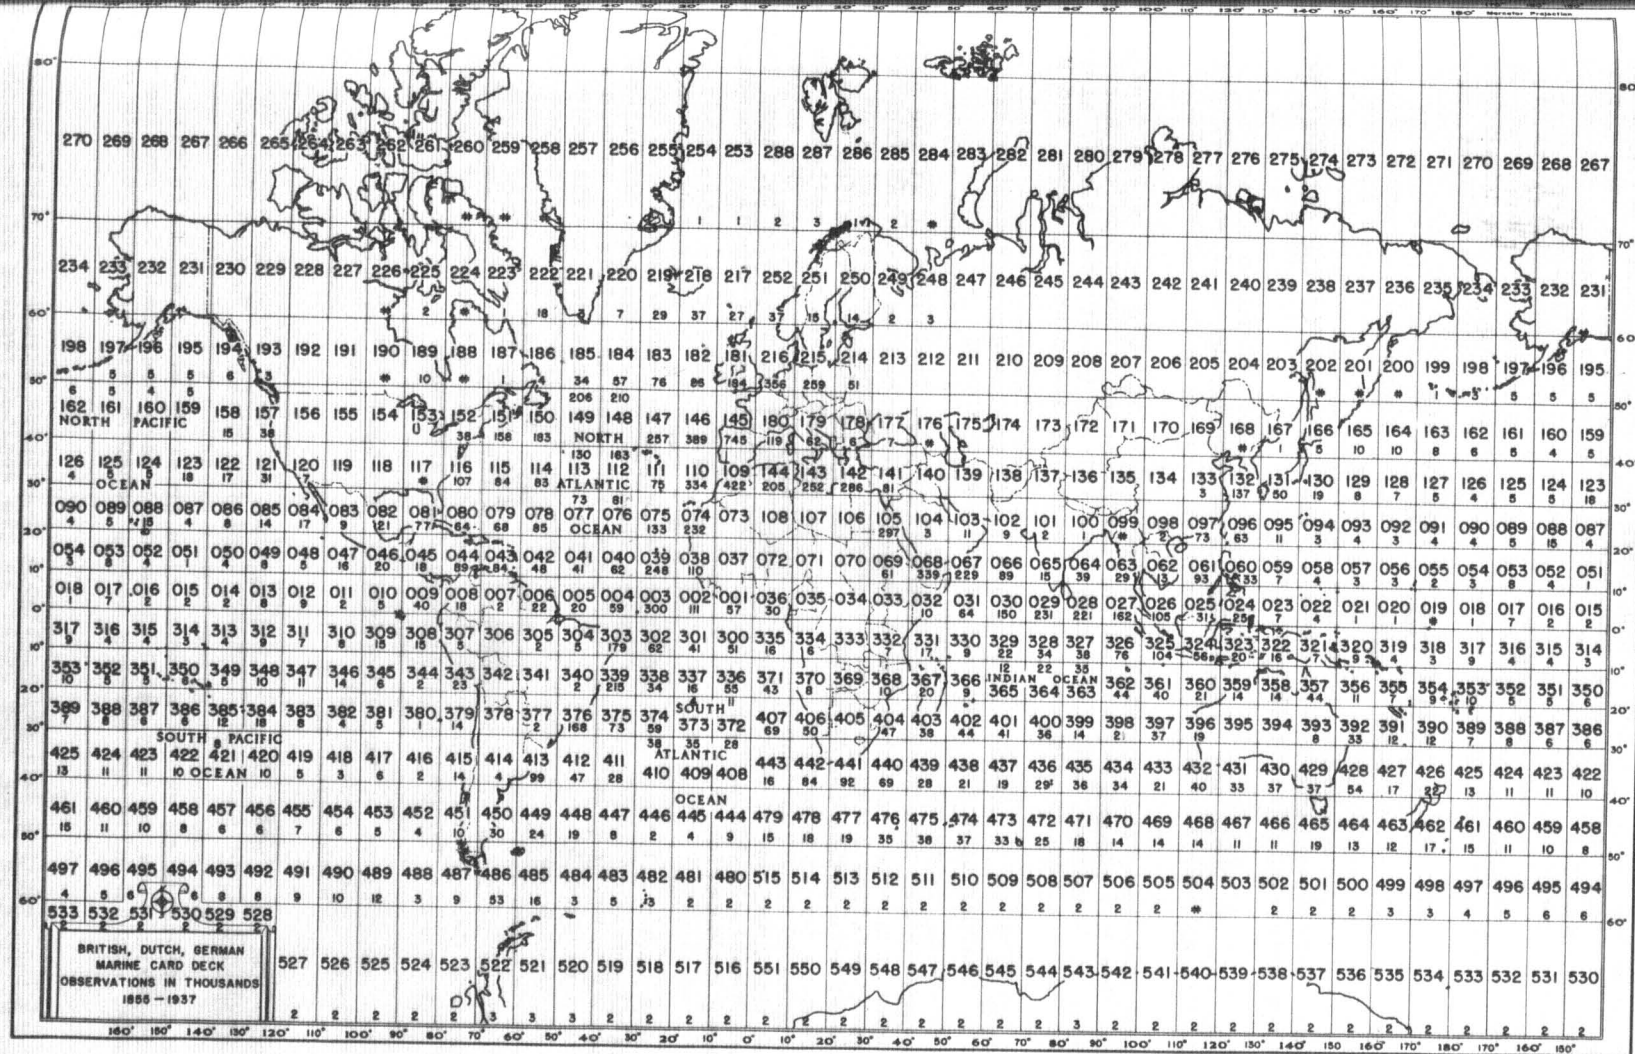 Mercator Projection
80° 80°
270 269 268 267 266 265 264 263 262 261 260 259 258 257 256 255 254 253 288 287 286 285 284 283 282 281 280 279 278 277 276 275 274 273 272 271 270 269 268 267
70° # # 1 1 2 3 1 2 # 70°
234 233 232 231 230 229 228 227 226 225 224 223 222 221 220 219 218 217 252 251 250 249 248 247 246 245 244 243 242 241 240 239 238 237 236 235 234 233 232 231
60° # 2 # 1 18 5 7 29 37 27 37 15 14 2 3 60°
198 197 196 195 194 193 192 191 190 189 188 187 186 185 184 183 182 181 216 215 214 213 212 211 210 209 208 207 206 205 204 203 202 201 200 199 198 197 196 195
50° 5 5 5 6 3 # 10 # 1 4 34 57 76 86 184 356 259 51 # # # 1 3 5 5 5 50°
6 5 4 5 206 210
162 161 160 159 158 157 156 155 154 153 152 151 150 149 148 147 146 145 180 179 178 177 176 175 174 173 172 171 170 169 168 167 166 165 164 163 162 161 160 159
NORTH PACIFIC
40° 15 38 38 158 183 NORTH 257 389 745 119 62 6 7 # # 1 5 10 10 8 6 5 4 5 40°
130 163
126 125 124 123 122 121 120 119 118 117 116 115 114 113 112 111 110 109 144 143 142 141 140 139 138 137 136 135 134 133 132 131 130 129 128 127 126 125 124 123
4 5 5 18 17 31 7 # 107 84 83 ATLANTIC 75 334 422 205 252 286 81 3 137 50 19 8 7 5 4 5 5 18
30° OCEAN 30°
73 81
090 089 088 087 086 085 084 083 082 081 080 079 078 077 076 075 074 073 108 107 106 105 104 103 102 101 100 099 098 097 096 095 094 093 092 091 090 089 088 087
4 5 15 4 8 14 17 9 21 77 64 68 85 OCEAN 133 232 297 3 11 9 2 1 # 2 73 63 11 3 4 3 4 4 5 15 4
20° 20°
054 053 052 051 050 049 048 047 046 045 044 043 042 041 040 039 038 037 072 071 070 069 068 067 066 065 064 063 062 061 060 059 058 057 056 055 054 053 052 051
3 8 4 1 4 8 5 16 20 18 89 84 48 41 62 248 110 61 339 229 89 15 39 29 13 93 33 7 4 3 3 2 3 8 4 1
10° 10°
018 017 016 015 014 013 012 011 010 009 008 007 006 005 004 003 002 001 036 035 034 033 032 031 030 029 028 027 026 025 024 023 022 021 020 019 018 017 016 015
1 7 2 2 2 8 9 2 5 40 18 2 22 20 59 300 111 57 30 10 64 150 231 221 162 105 31 25 7 4 1 1 # 1 7 2 2
0° 0°
317 316 315 314 313 312 311 310 309 308 307 306 305 304 303 302 301 300 335 334 333 332 331 330 329 328 327 326 325 324 323 322 321 320 319 318 317 316 315 314
9 4 4 3 4 9 7 8 15 15 5 2 5 179 62 41 51 16 16 7 17 9 22 34 38 76 104 56 20 16 7 9 4 3 9 4 4 3
10° 12 22 35 10°
353 352 351 350 349 348 347 346 345 344 343 342 341 340 339 338 337 336 371 370 369 368 367 366 365 364 363 362 361 360 359 358 357 356 355 354 353 352 351 350
INDIAN OCEAN
10 5 5 6 5 10 11 14 6 2 23 2 215 34 16 55 43 8 10 20 9 44 40 21 14 14 44 11 7 9 10 5 5 6
20° SOUTH 20°
4 11
389 388 387 386 385 384 383 382 381 380 379 378 377 376 375 374 373 372 407 406 405 404 403 402 401 400 399 398 397 396 395 394 393 392 391 390 389 388 387 386
7 8 6 6 12 18 8 4 5 14 2 168 73 59 69 50 47 38 44 41 36 14 21 37 19 8 33 12 12 7 8 6 6
30° SOUTH PACIFIC 38 35 28 30°
8 ATLANTIC
425 424 423 422 421 420 419 418 417 416 415 414 413 412 411 410 409 408 443 442 441 440 439 438 437 436 435 434 433 432 431 430 429 428 427 426 425 424 423 422
13 11 11 10 OCEAN 10 5 3 6 2 14 4 99 47 28 16 84 92 69 28 21 19 29 36 34 21 40 33 37 37 54 17 22 13 11 11 10
40° OCEAN 40°
461 460 459 458 457 456 455 454 453 452 451 450 449 448 447 446 445 444 479 478 477 476 475 474 473 472 471 470 469 468 467 466 465 464 463 462 461 460 459 458
15 11 10 8 6 6 7 6 5 4 10 30 24 19 8 2 4 9 15 18 19 35 38 37 33 25 18 14 14 14 11 11 19 13 12 17 15 11 10 8
50° 50°
497 496 495 494 493 492 491 490 489 488 487 486 485 484 483 482 481 480 515 514 513 512 511 510 509 508 507 506 505 504 503 502 501 500 499 498 497 496 495 494
4 5 6 6 8 8 9 10 12 3 9 53 16 3 5 3 2 2 2 2 2 2 2 2 2 2 2 2 2 # 2 2 2 3 3 4 5 6 6
60° 60°
533 532 531 530 529 528
2 2 2 2 2 2
BRITISH, DUTCH, GERMAN
MARINE CARD DECK
OBSERVATIONS IN THOUSANDS
1855 – 1937
527 526 525 524 523 522 521 520 519 518 517 516 551 550 549 548 547 546 545 544 543 542 541 540 539 538 537 536 535 534 533 532 531 530
2 2 2 2 2 3 3 3 2 2 2 2 2 2 2 2 2 2 2 2 3 2 2 2 2 2 2 2 2 2 2 2 2 2
160° 150° 140° 130° 120° 110° 100° 90° 80° 70° 60° 50° 40° 30° 20° 10° 0° 10° 20° 30° 40° 50° 60° 70° 80° 90° 100° 110° 120° 130° 140° 150° 160° 170° 180° 170° 160° 150°